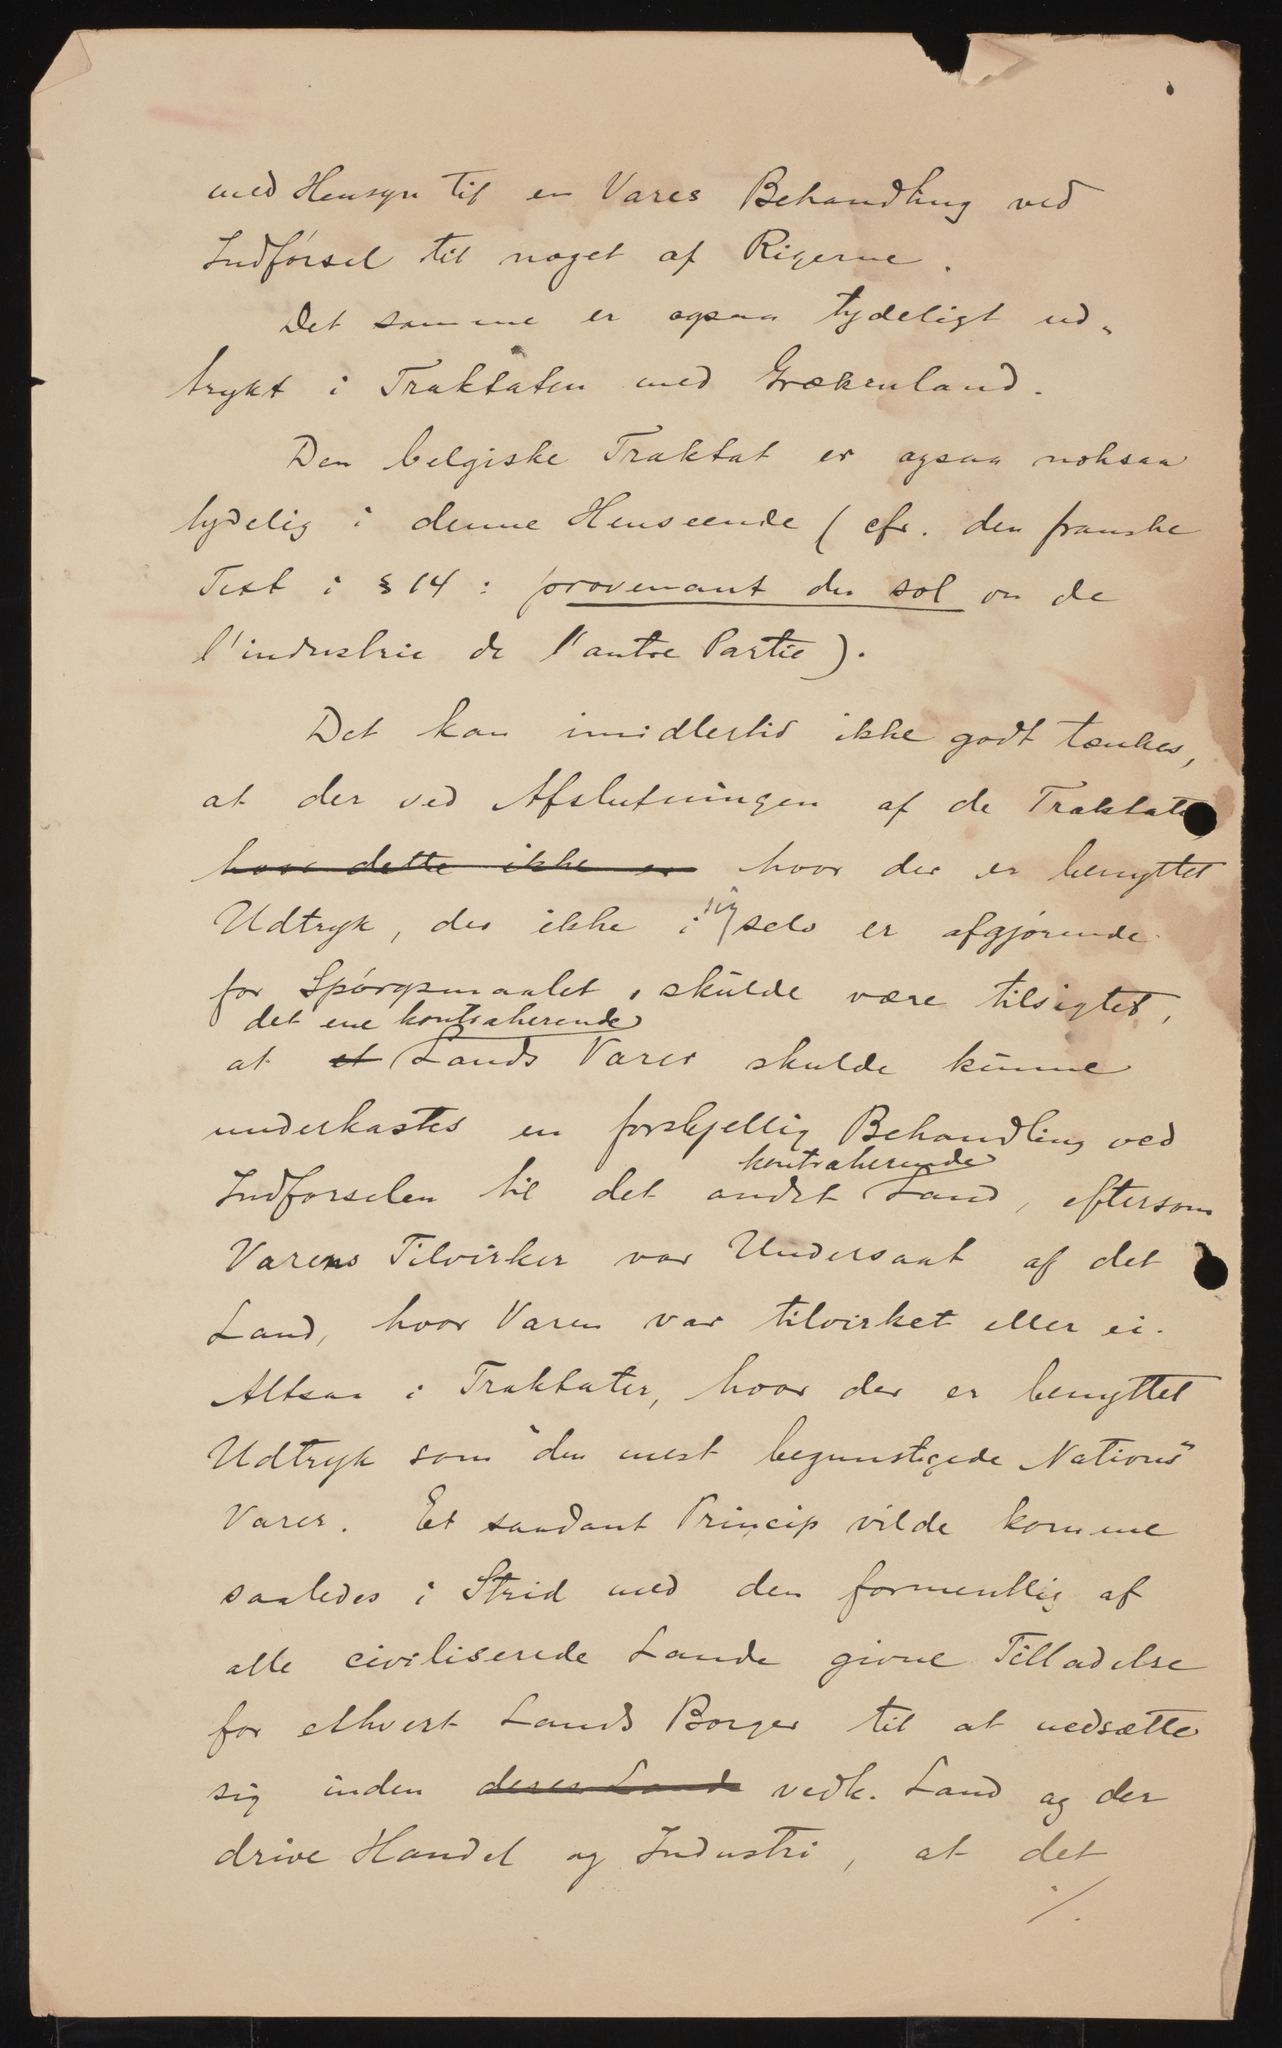 med Hensyn til en Vares Behandling ved
Indførsel til noget af Rigerne.
Det samme er ogsaa tydeligt ud„
trykt i Traktaten med Grækenland.
Den belgiske Traktat er ogsaa noksaa
tydelig i denne Henseende (cfr. den franske
Text i § 14 : provenant du sol ou de
l'industrie de l'autre Partie).
Det kan imidlertid ikke godt tænkes,
at der ved Afslutningen af de Traktater
hvor dette ikke er hvor der er benyttet
Udtryk, der ikke i sig selv er afgjørende
for Spørgsmaalet, skulde være tilsigtet,
det ene kontraherende
at et Lands Varer skulde kunne
underkastes en forskjellig Behandling ved
kontraherende
Indførselen til det andet Land, eftersom
Varens Tilvirker var Undersaat af det
Land, hvor Varen var tilvirket eller ei.
Altsaa i Traktater, hvor der er benyttet
Udtryk som "den mest begunstigede Nations"
Varer. Et saadant Princip vilde komme
saaledes i Strid med den formentlig af
alle civiliserede Lande givne Tilladelse
for ethvert Lands Borger til at nedsætte
sig inden deres Land vedk. Land og der
drive Handel og Industri, at det
./.